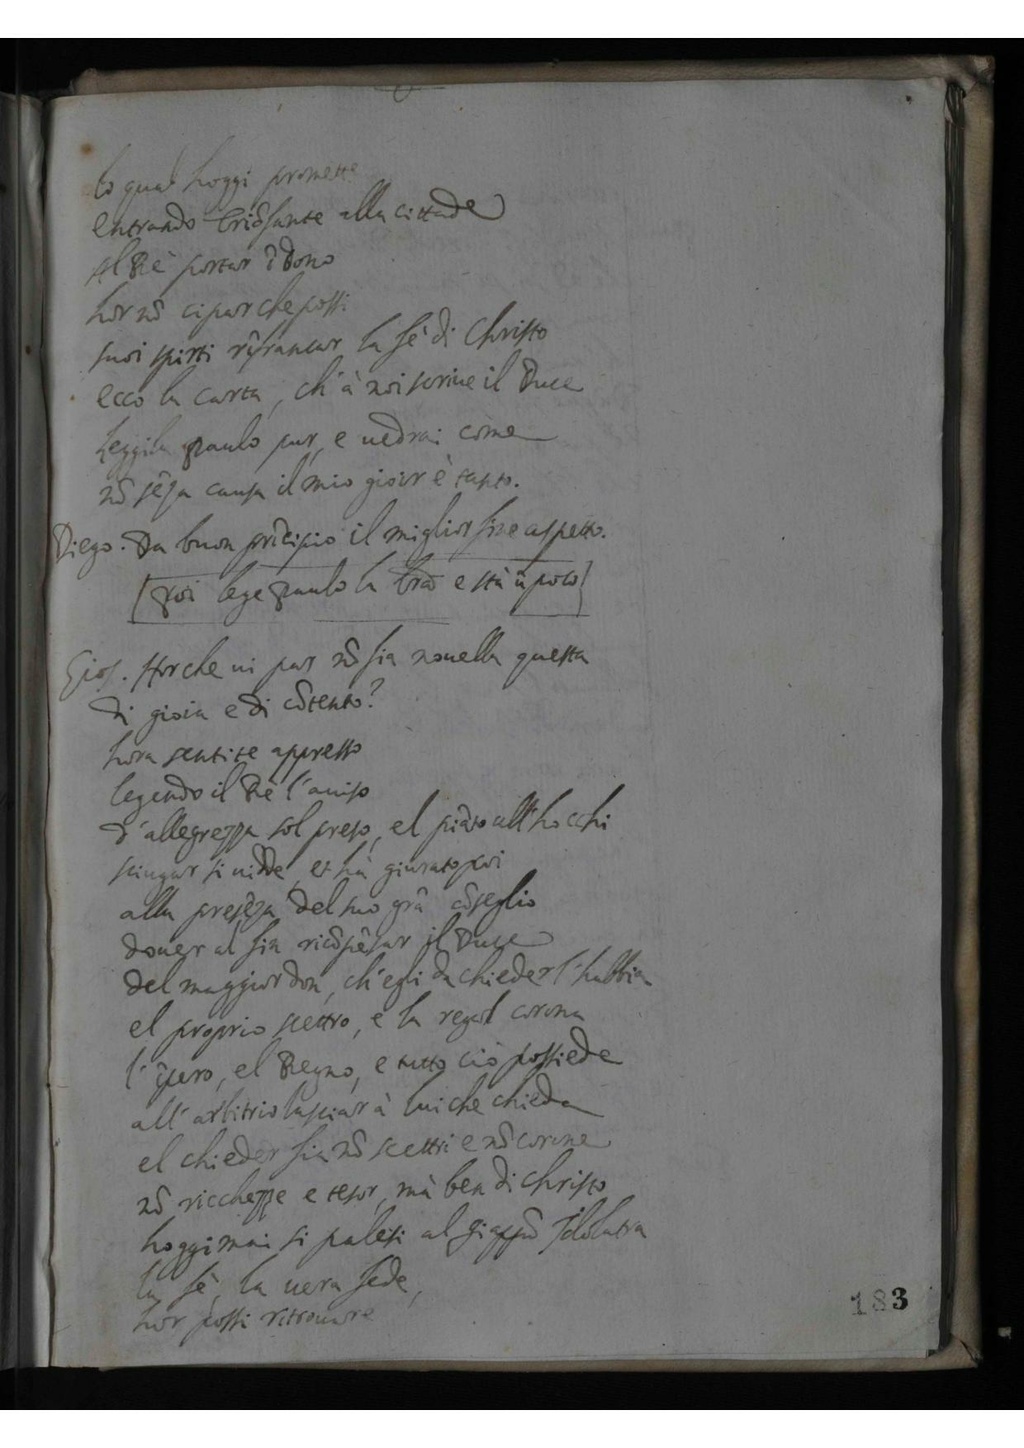 lo qual hoggi promette
entrando triõfante alla cittade
Al Rè portar ĩ dono
hor nõ ci par che possi
suoi spirti rĩfrancar la fè di Christo
ecco la carta, ch'à noi scriue il Duce
leggila Paulo pur, e uedrai come
nõ sẽza causa il mio gioir è tanto.
Diego. Da buon prĩcipio il miglior fine aspetto.
[poi lege Paulo la lrã e stà ũ poco]
Gios. Hor che ui par nõ sia nouella questa
di gioia e di cõtento?
hora sentite appresso
legendo il Rè l'auiso
d'allegrezza sol preso, el piãto all'hocchi
sciugar si uidde, et hà giurato poi
alla presẽza del suo grã cõseglio
douer al fin ricõpẽsar il Duce
del maggior don, ch'egli da chieder l'habbia
el proprio scettro, e la regal corona
l'ĩpero, el Regno, e tutto ciò possiede
all'arbitrio lasciar à lui che chieda
el chieder sia nõ scettri e nõ corone
nõ ricchezze e tesor, mà ben di Christo
hoggimai si palesi al Giappõ Idolatra
la fè, la uera fede,
hor possi ritrouare
183